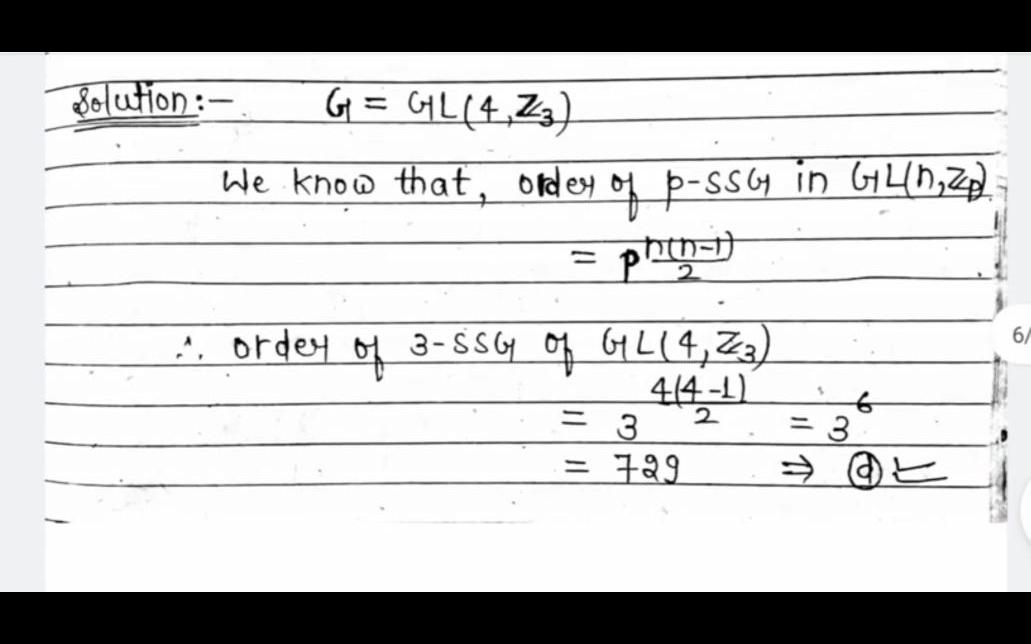 Solution:- G = GL(4, ℤ₃)
We know that, order of p-SSG in GL(n, ℤp)
= p^(n(n-1)/2)
∴ order of 3-SSG of GL(4, ℤ₃)
= 3^(4(4-1)/2) = 3^6
= 729 ⇒ ⓓ
6/